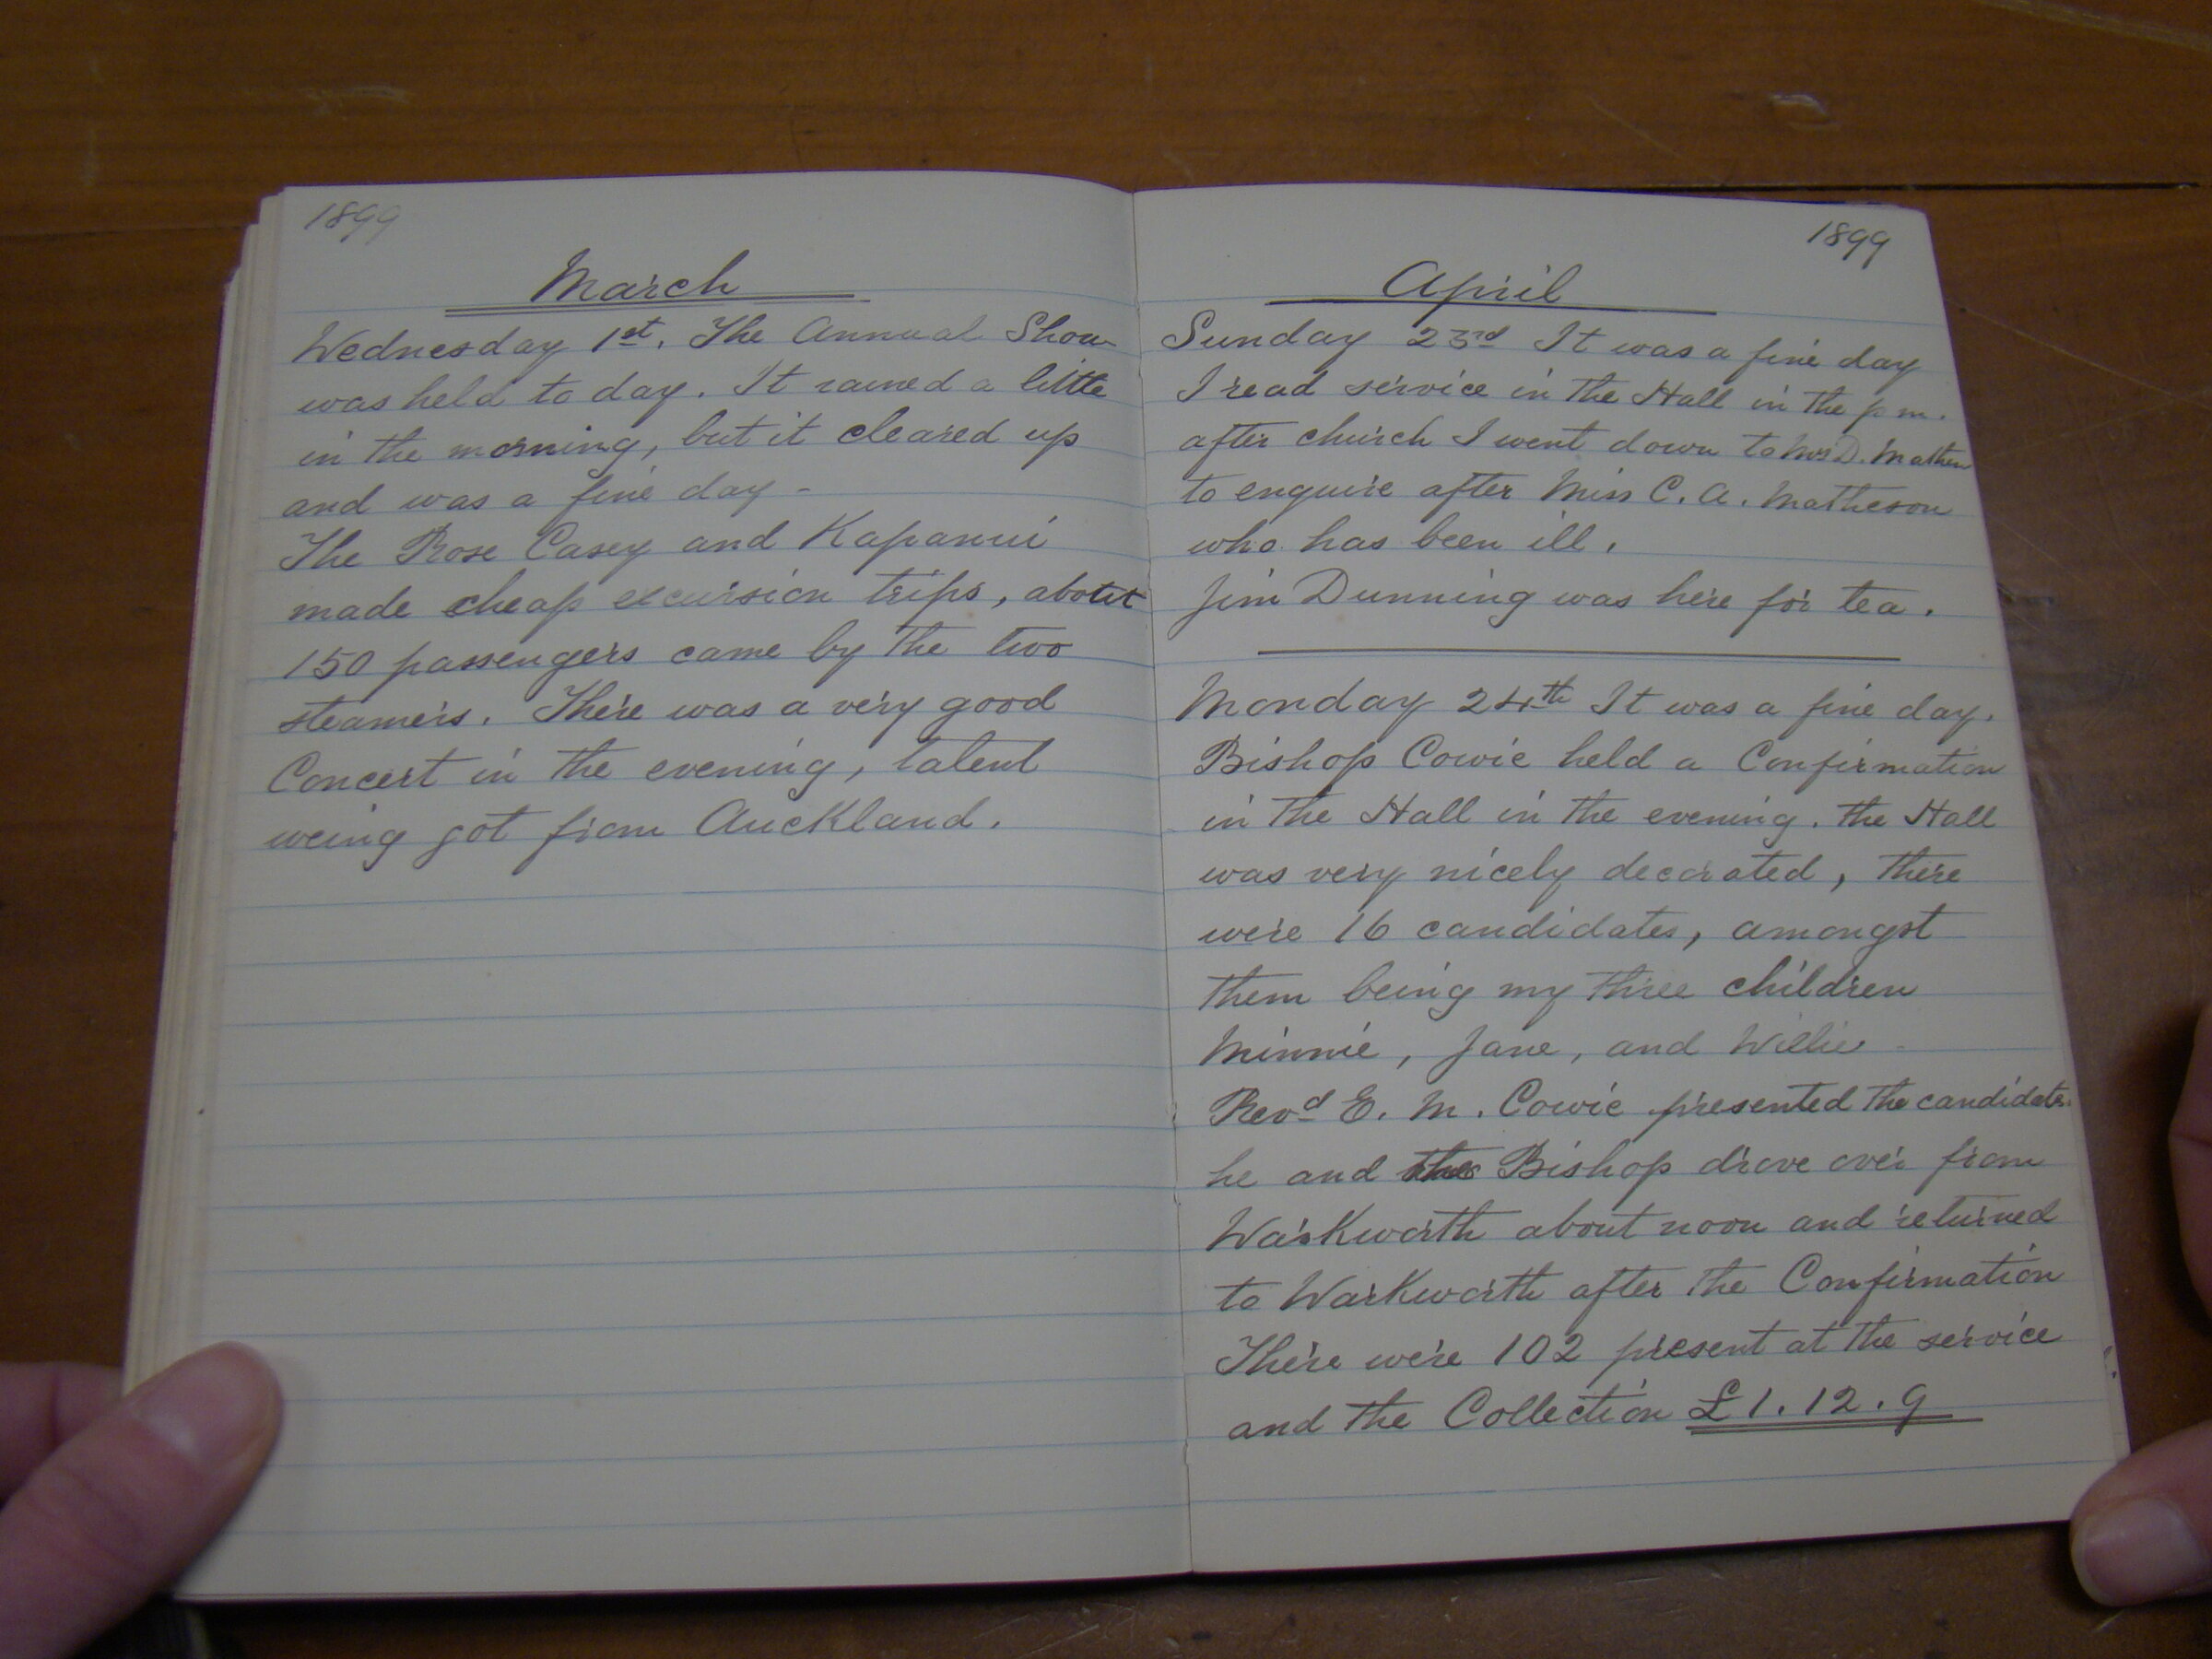 1899
March
Wednesday 1st. The Annual Show
was held to day. It rained a little
in the morning, but it cleared up
and was a fine day -
The Rose Casey and Kapanui
made cheap excursion trips, about
150 passengers came by the two
steamers. There was a very good
Concert in the evening, talent
weing got from Auckland.
1899
April
Sunday 23rd It was a fine day
I read service in the Hall in the p m.
after church I went down to Mrs D. Mathew
to enquire after Miss C. A. Matheson
who has been ill.
Jim Dunning was here for tea.
Monday 24th It was a fine day.
Bishop Cowie held a Confirmation
in the Hall in the evening. the Hall
was very nicely decorated, there
were 16 candidates, amongst
them being my three children
Minnie, Jane, and Willie -
Revd E. M. Cowie presented the candidates.
he and the Bishop drove over from
Warkworth about noon and returned
to Warkworth after the Confirmation
There were 102 present at the service
and the Collection £1.12.9